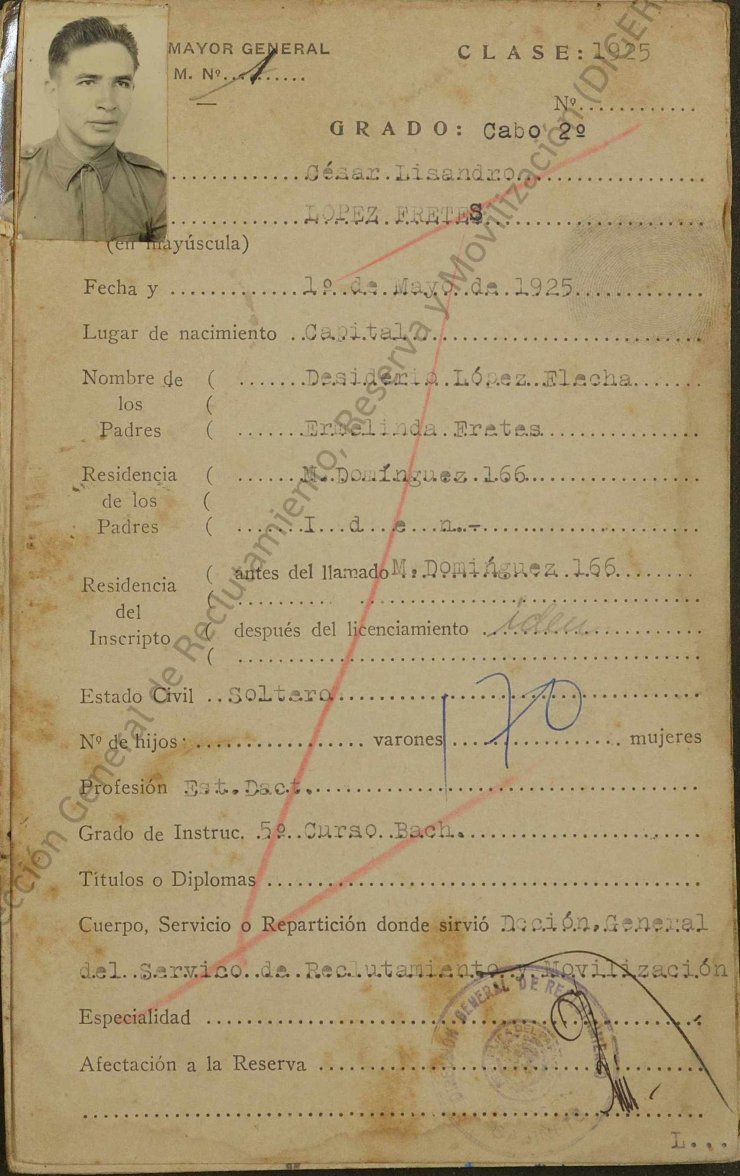 MAYOR GENERAL
M. Nº 1
CLASE: 1925
Nº
GRADO: Cabo 2º
César Lisandro
LOPEZ FRETES
(en mayúscula)
Fecha y 1º de Mayo de 1925
Lugar de nacimiento Capital
Nombre de ( Desiderio López Flecha
los (
Padres ( Ermelinda Fretes
Residencia ( M. Domínguez 166
de los (
Padres ( I d e n.-
Residencia ( antes del llamado M. Domínguez 166
del (
Inscripto ( después del licenciamiento iden
(
Estado Civil Soltero
Nº de hijos: varones mujeres
Profesión Est. Dact.
Grado de Instruc. 5º Curso Bach.
Títulos o Diplomas
Cuerpo, Servicio o Repartición donde sirvió Dcción. General
del Servico de Reclutamiento y Movilización
Especialidad
Afectación a la Reserva
L...
ección General de Reclutamiento, Reserva y Movilización (DIGER